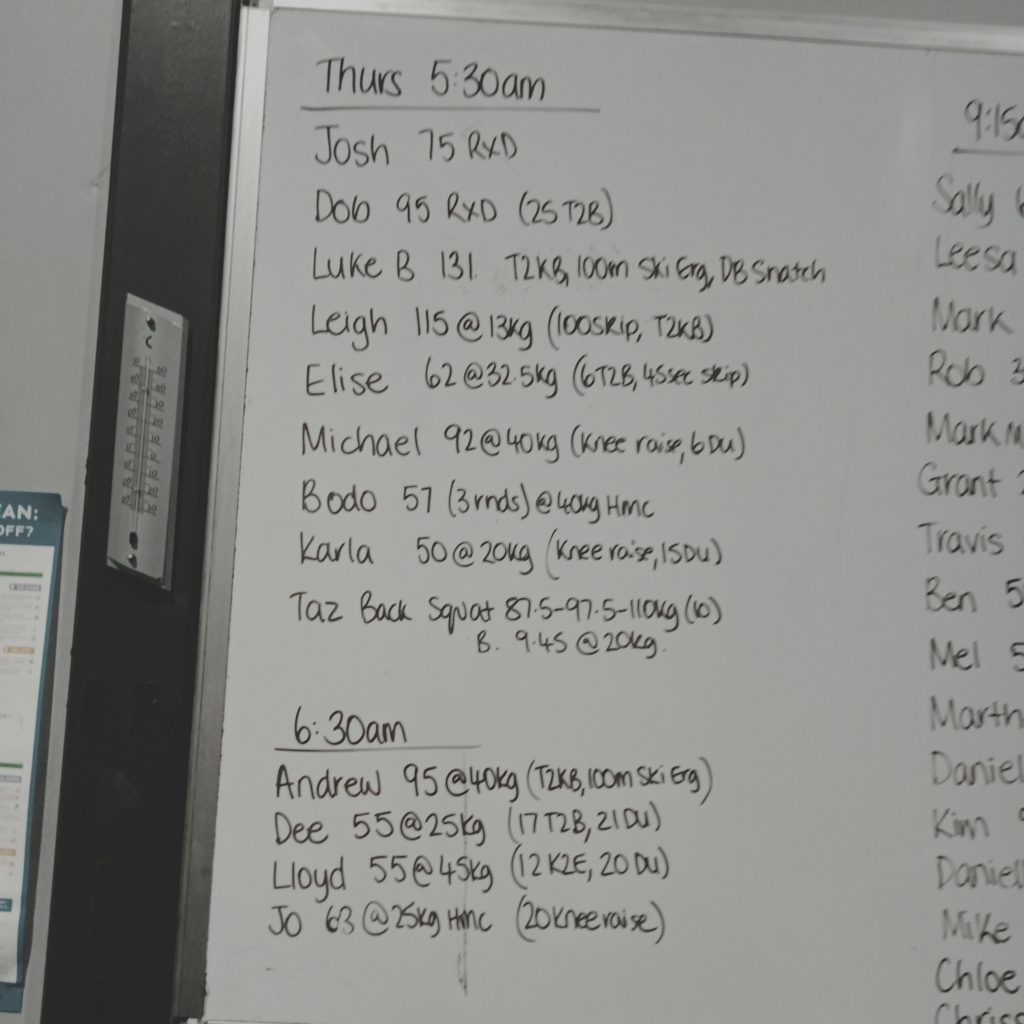 Thurs 5:30am
Josh 75 RXD
Dob 95 RXD (25 T2B)
Luke B 131 T2KB, 100m Ski Erg, DB Snatch
Leigh 115 @ 13kg (100skip, T2KB)
Elise 62 @ 32.5kg (6T2B, 45sec skip)
Michael 92 @ 40kg (Knee raise, 6 DU)
Bodo 57 (3rnds) @ 40kg Hmc
Karla 50 @ 20kg (Knee raise, 15DU)
Taz Back Squat 87.5-97.5-110kg (10)
B. 9.45 @ 20kg.
6:30am
Andrew 95 @ 40kg (T2KB, 100m Ski Erg)
Dee 55 @ 25kg (17 T2B, 21 DU)
Lloyd 55 @ 45kg (12 K2E, 20 DU)
Jo 63 @ 25kg Hmc (20 Knee raise)
9:15
Sally
Leesa
Mark
Rob 3
Mark M
Grant
Travis
Ben 5
Mel 5
Marth
Daniel
Kim
Daniell
Mike
Chloe
C
OFF?